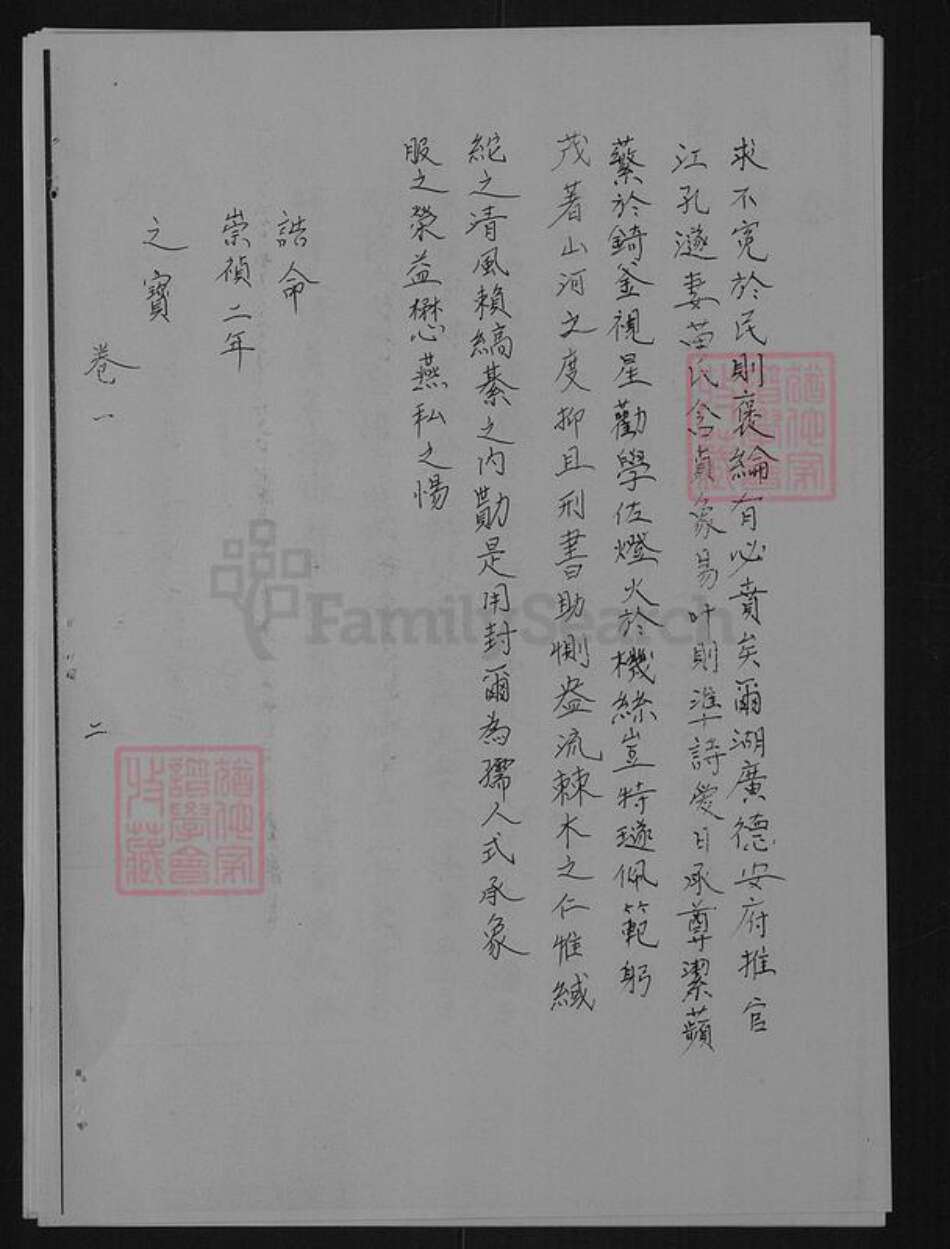 求不冤於民則褒綸有必賁矣爾湖廣德安府推官
江孔邃妻苗氏含貞象易叶則準詩愛日承尊潔蘋
蘩於錡釜視星勸學佐燈火於機絲豈特璲佩範躬
茂著山河之度抑且刑書助惻益流棘木之仁惟緎
紽之清風賴縞綦之内勩是用封爾為孺人式承象
服之榮益懋燕私之惕
誥命
崇禎二年
之寶
卷一
二
FamilySearch
譜學會
收藏